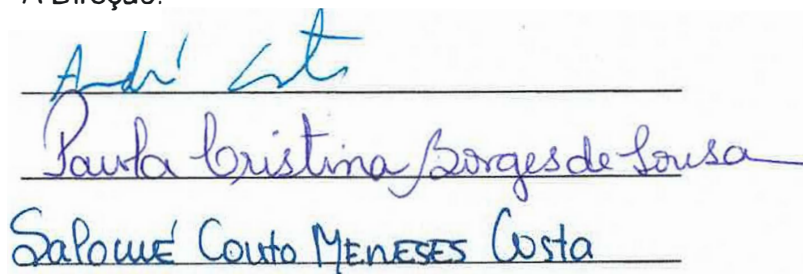 A Direção:
André Costa
Paula Cristina Borges de Sousa
Salomé Couto Meneses Costa